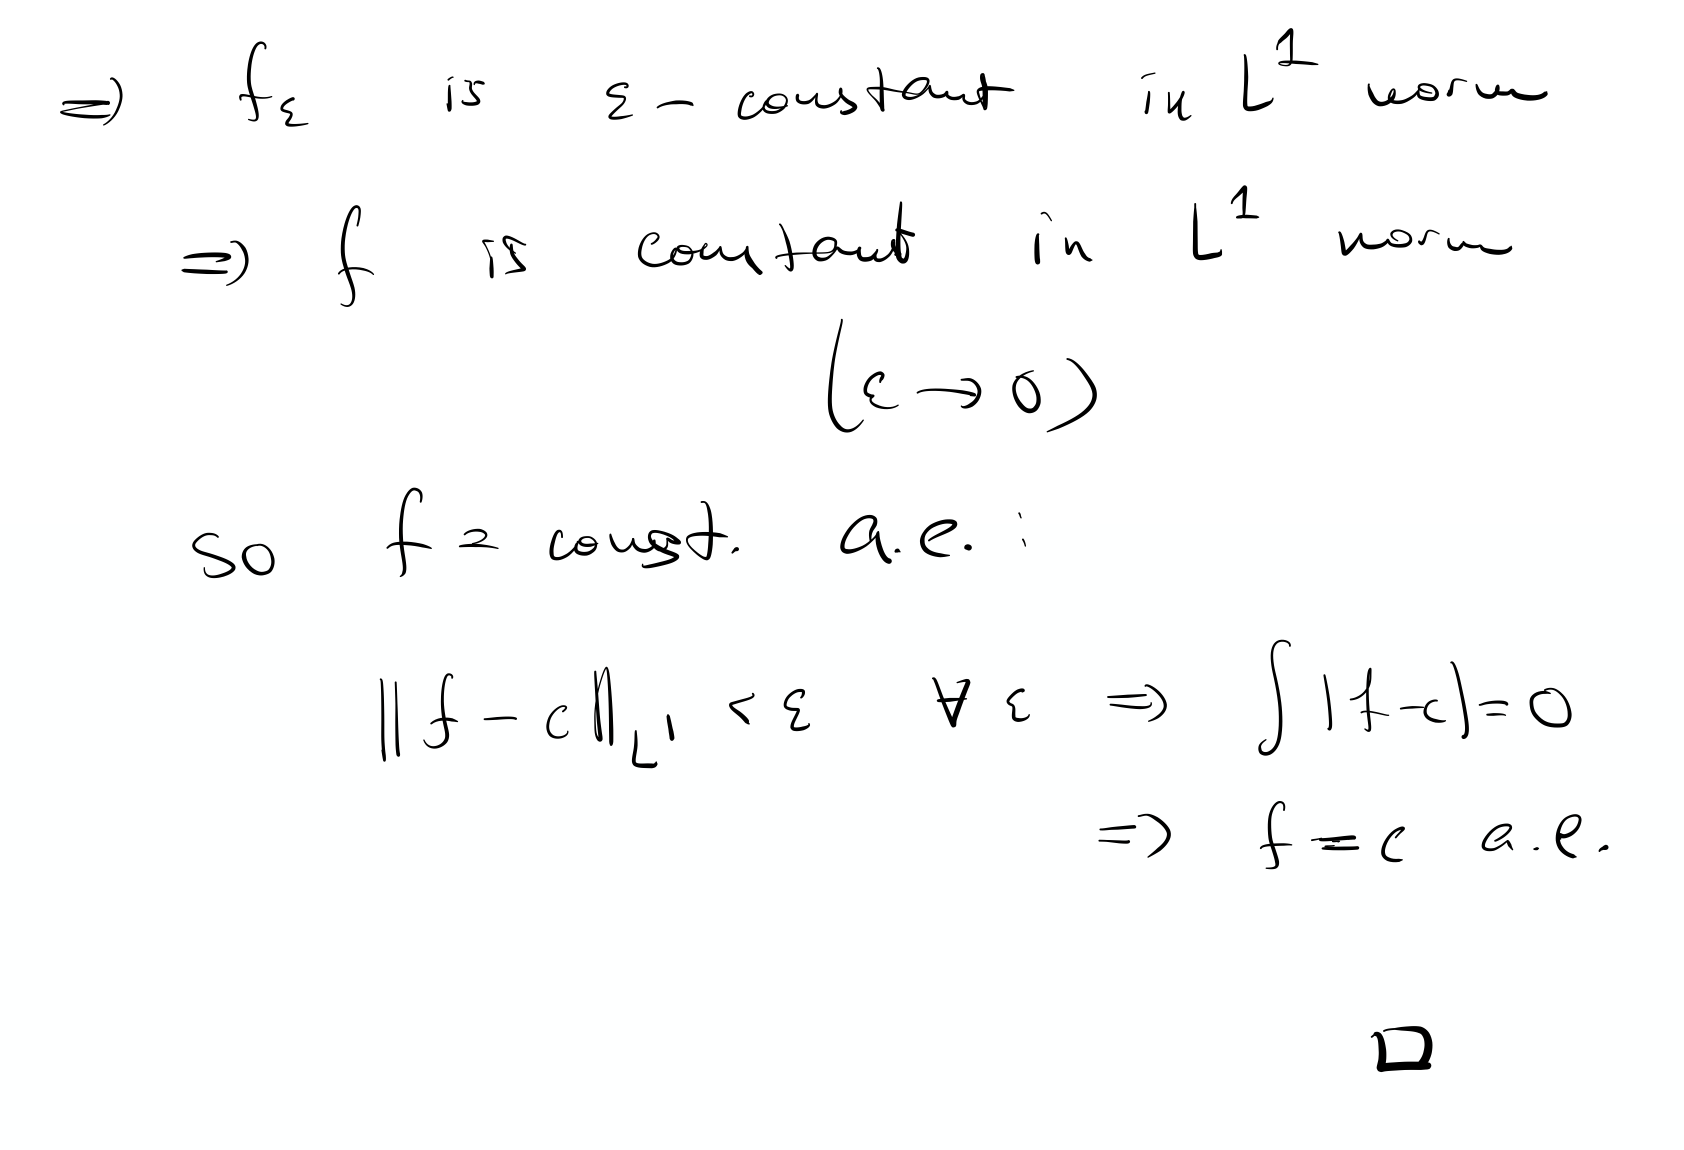 ⇒ f_ε is ε-constant in L¹ norm
⇒ f is constant in L¹ norm
(ε → 0)
so f = const. a.e. :
‖f - c‖_L¹ < ε ∀ ε ⇒ ∫|f-c| = 0
⇒ f = c a.e.
□